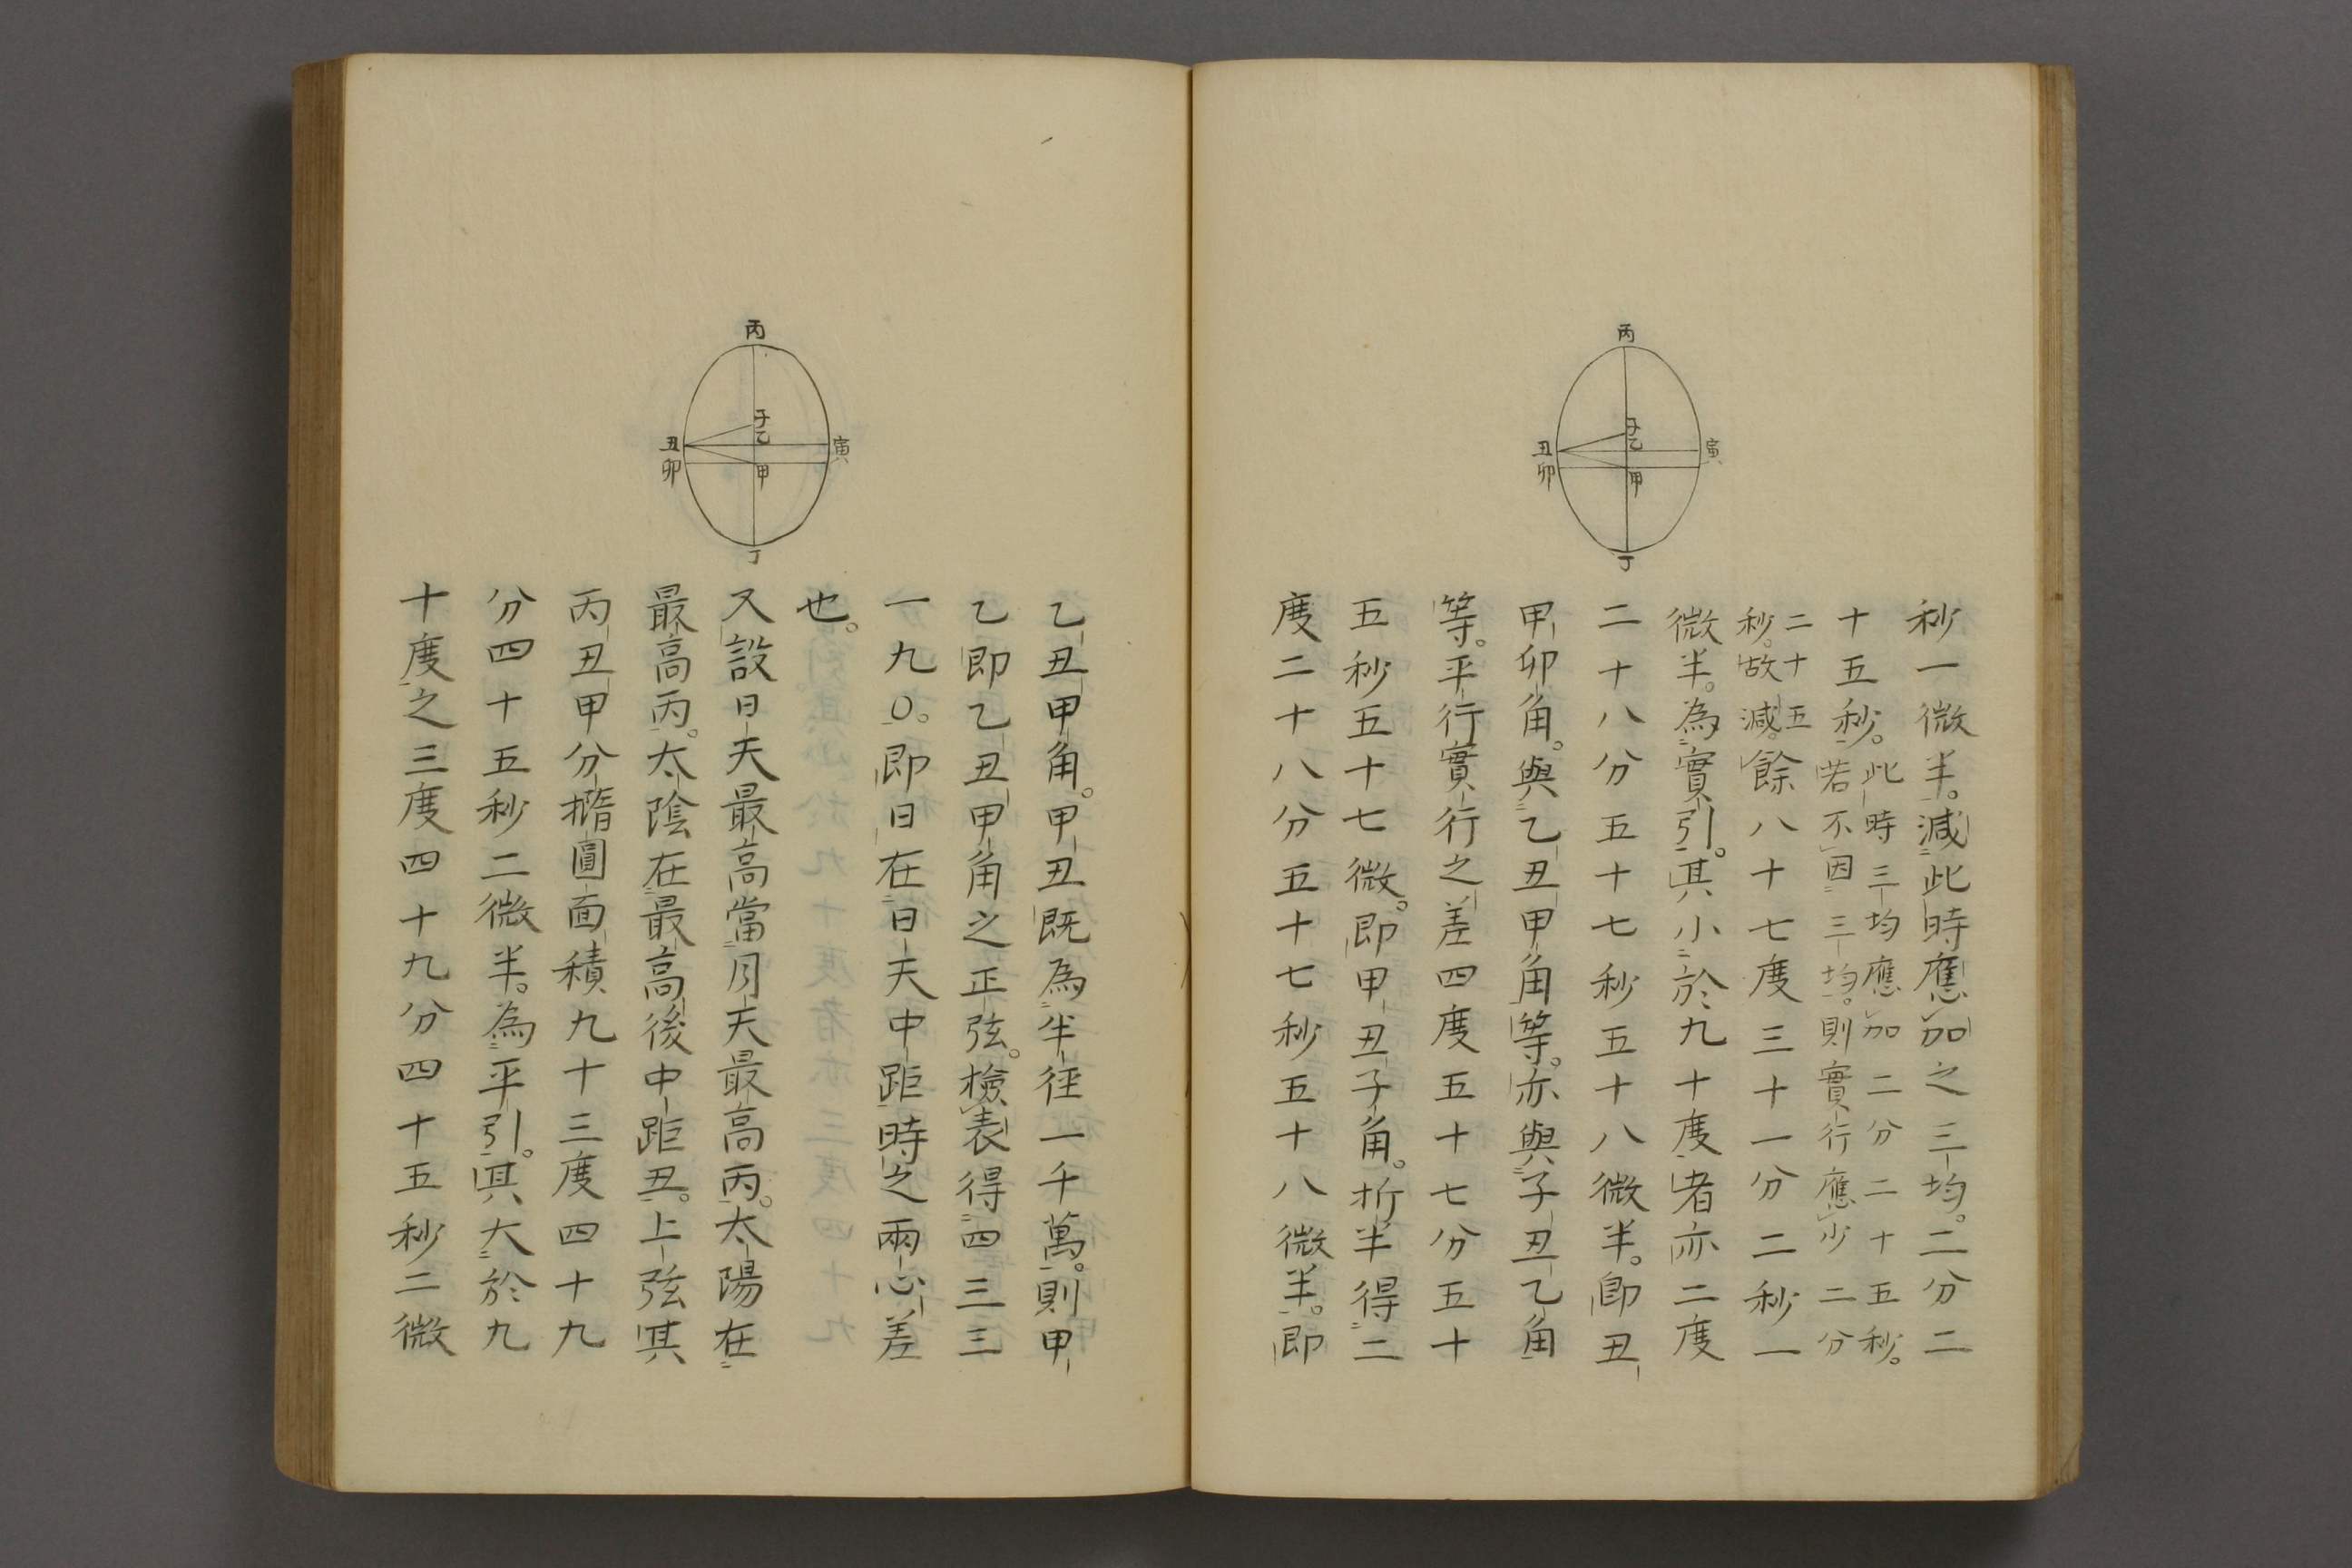 丙
子
乙
丑
寅
卯
甲
丁
秒一微半。減此時應加之三均。二分二
十五秒。此時三均應加二分二十五秒。
若不因三均。則實行應少二分
二十五
秒。故減。餘八十七度三十一分二秒一
微半。為實引。其小於九十度者亦二度
二十八分五十七秒五十八微半。卽丑
甲卯角。與乙丑甲角等。亦與子丑乙角
等。平行實行之差四度五十七分五十
五秒五十七微。即甲丑子角。折半得二
度二十八分五十七秒五十八微半。即
丙
子
乙
丑
寅
卯
甲
丁
乙丑甲角。甲丑既為半徑一千萬。則甲
乙即乙丑甲角之正弦。檢表得四三三
一九〇。即日在日天中距時之兩心差
也。
又設日天最高當月天最高丙。太陽在
最高丙。太陰在最高後中距丑。上弦其
丙丑甲分撱圓面積九十三度四十九
分四十五秒二微半。為平引。其大於九
十度之三度四十九分四十五秒二微